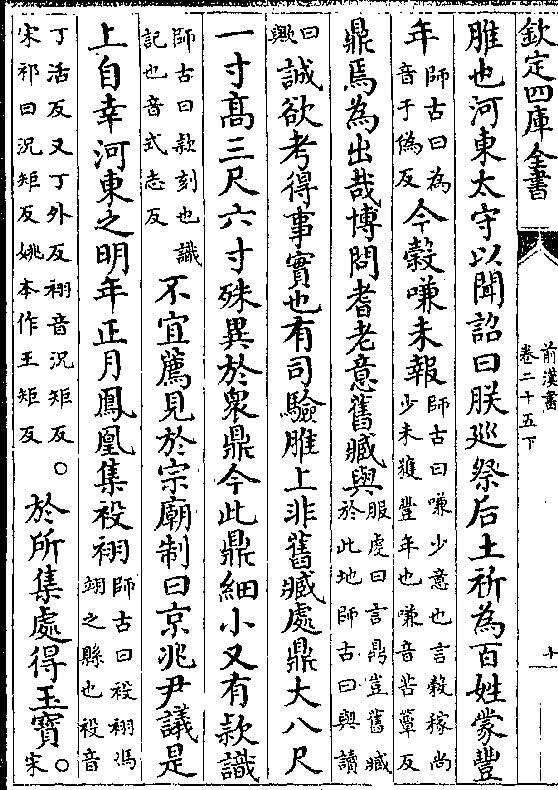 欽定四庫全書
前漢書
卷二十五下
十
脽也河東太守以聞詔曰朕巡祭后土祈為百姓蒙豐
年師古曰為音于偽反今穀嗛未報師古曰嗛少意也言穀稼尚少未獲豐年也嗛音苦簟反
鼎焉為出哉博問耆老意舊臧與服虔曰言鼎豈舊臧於此地師古曰與讀
曰歟誠欲考得事實也有司驗脽上非舊臧處鼎大八尺
一寸髙三尺六寸殊異於衆鼎今此鼎細小又有款識
師古曰款刻也識記也音式志反不宜薦見於宗廟制曰京兆尹議是
上自幸河東之明年正月鳳凰集祋祤師古曰祋祤馮翊之縣也祋音
丁活反又丁外反祤音況矩反。宋祁曰況矩反姚本作王矩反於所集處得玉寶。宋